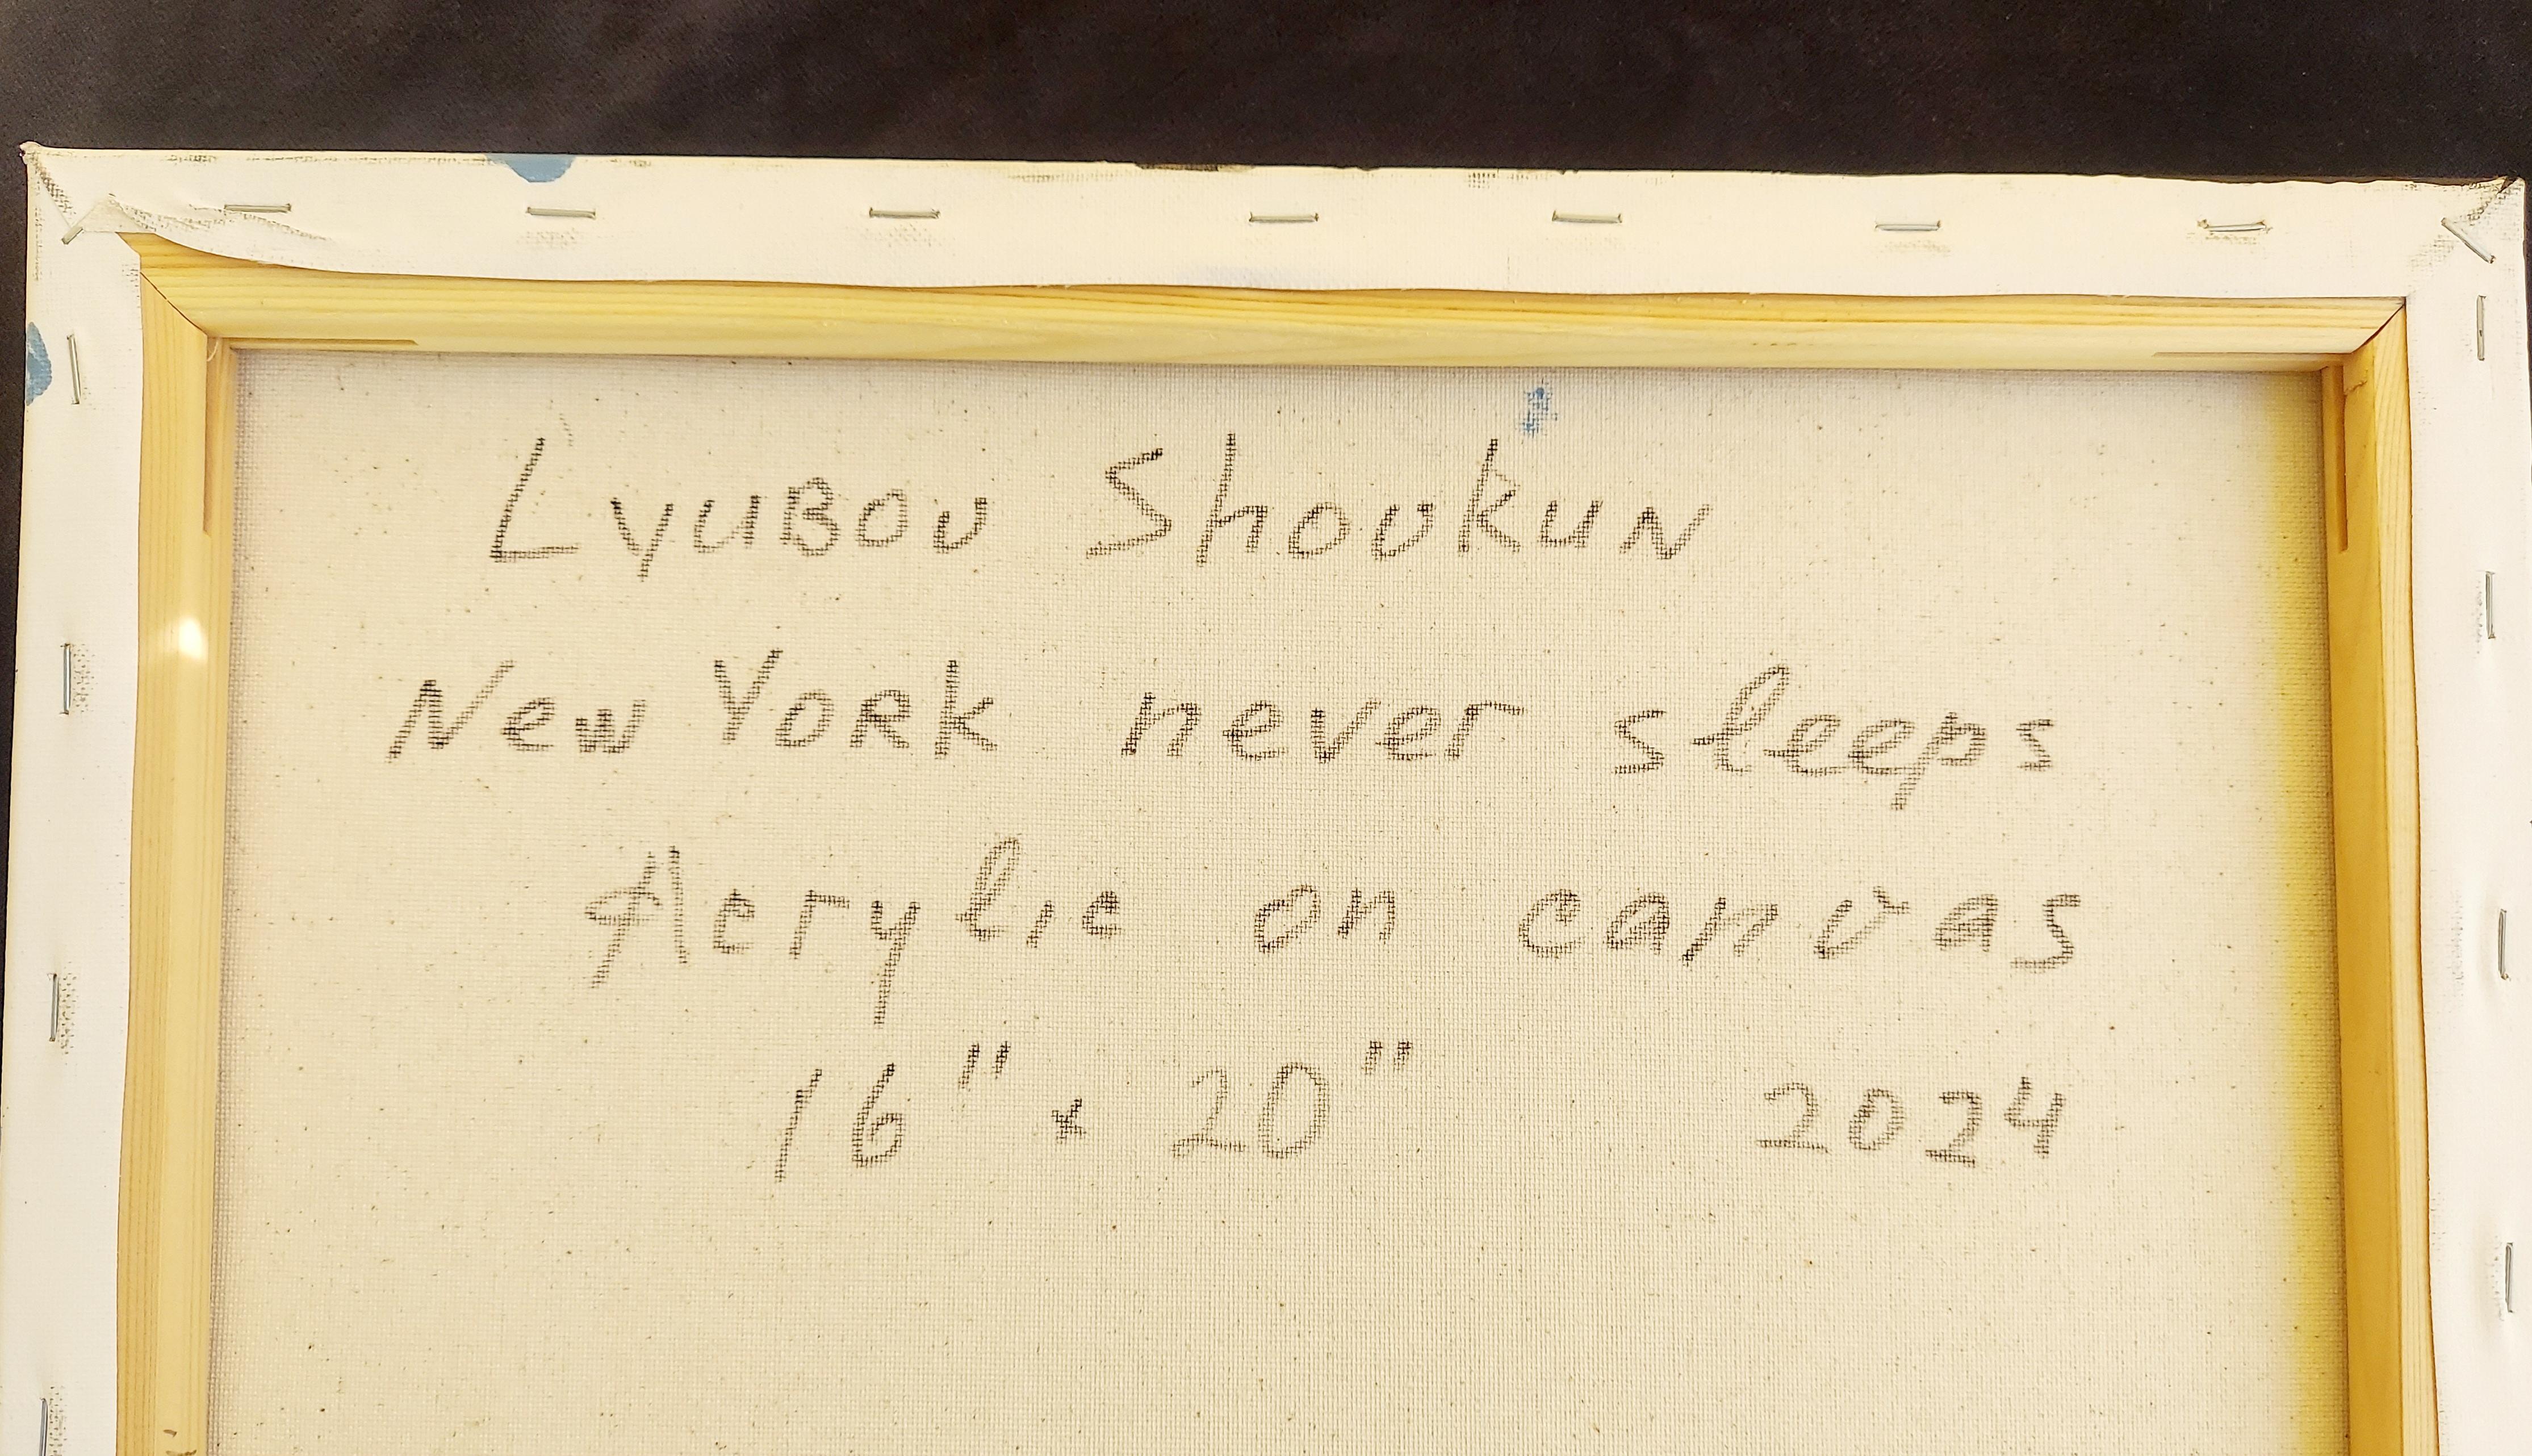 Lyubov Shovkun
New York never sleeps
Acrylic on canvas
16" x 20" 2024